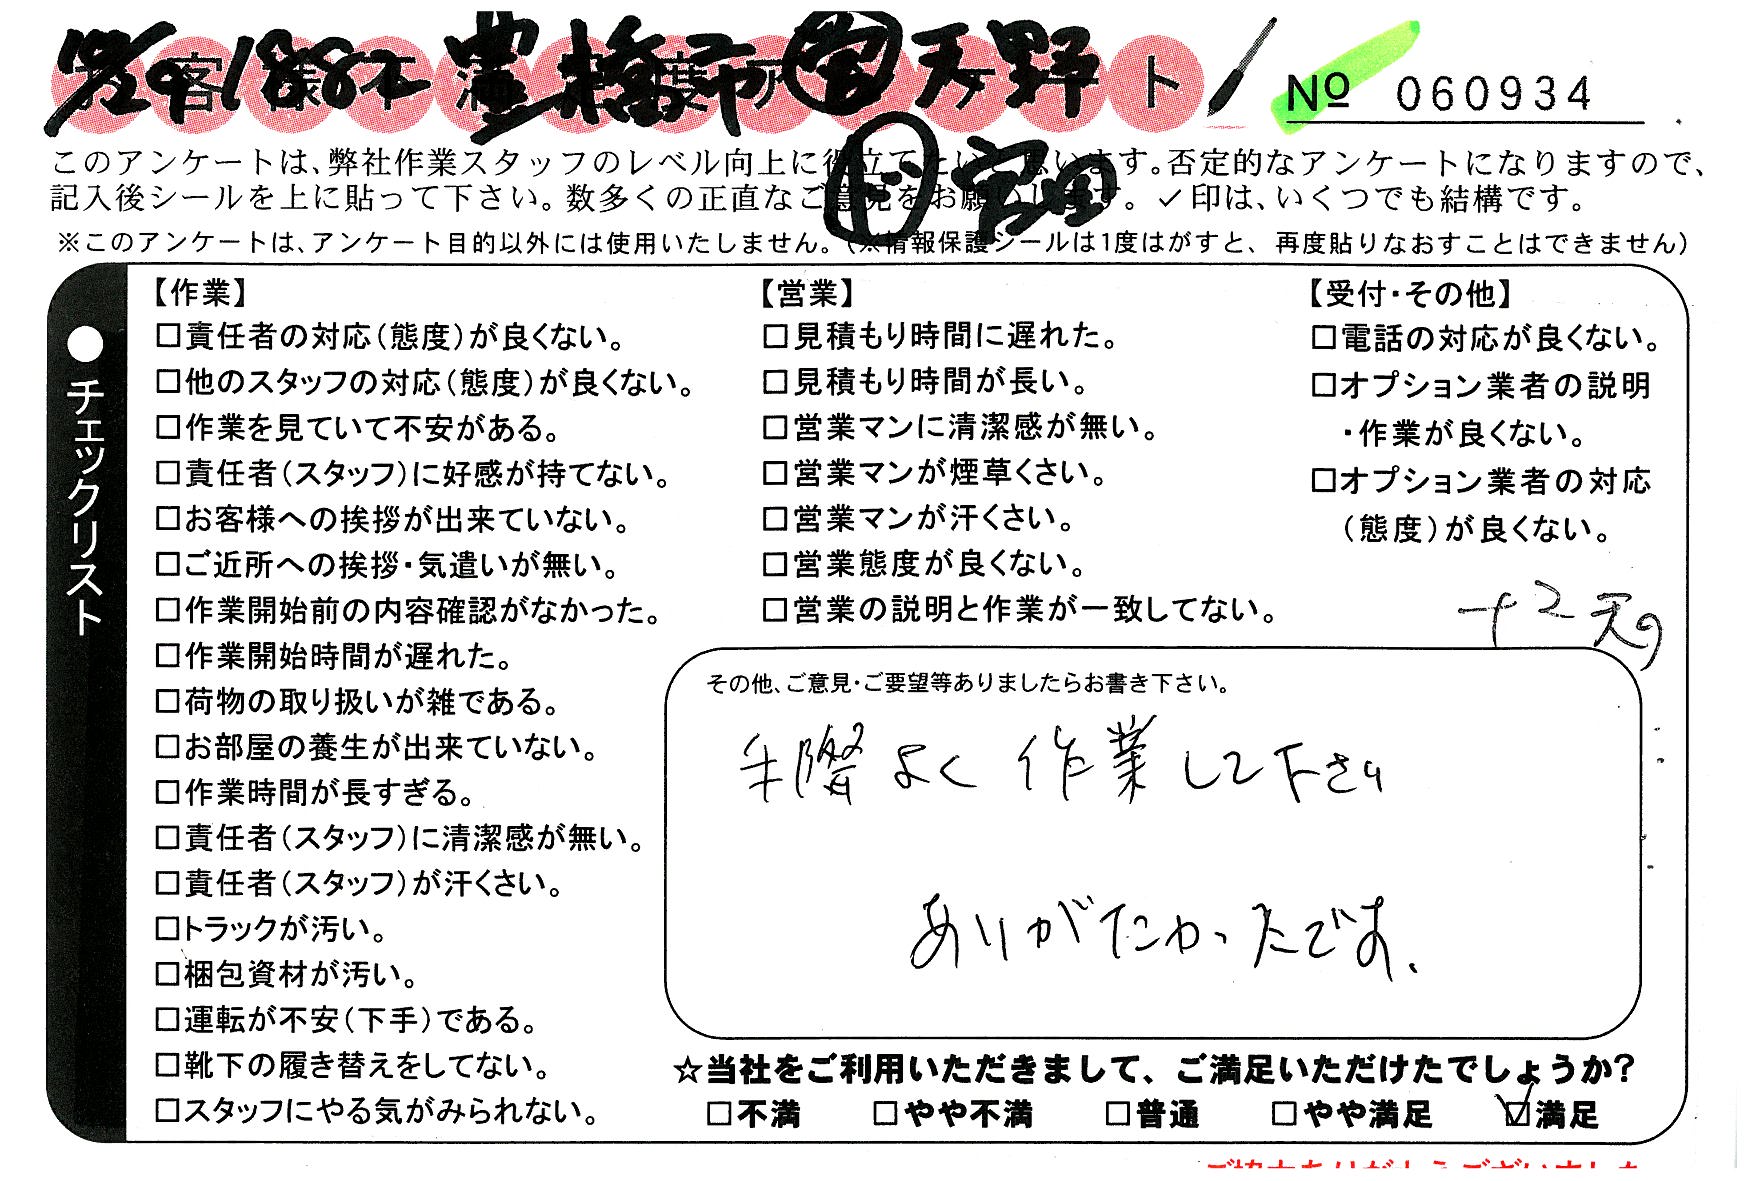 お客様不満足度アンケート
12/29 18882 豊橋市 営 天野
ド 宮田
No 060934
このアンケートは、弊社作業スタッフのレベル向上に役立てたいと思います。否定的なアンケートになりますので、
記入後シールを上に貼って下さい。数多くの正直なご意見をお願いします。✓印は、いくつでも結構です。
※このアンケートは、アンケート目的以外には使用いたしません。(※情報保護シールは1度はがすと、再度貼りなおすことはできません)
●チェックリスト
【作業】
□責任者の対応(態度)が良くない。
□他のスタッフの対応(態度)が良くない。
□作業を見ていて不安がある。
□責任者(スタッフ)に好感が持てない。
□お客様への挨拶が出来ていない。
□ご近所への挨拶・気遣いが無い。
□作業開始前の内容確認がなかった。
□作業開始時間が遅れた。
□荷物の取り扱いが雑である。
□お部屋の養生が出来ていない。
□作業時間が長すぎる。
□責任者(スタッフ)に清潔感が無い。
□責任者(スタッフ)が汗くさい。
□トラックが汚い。
□梱包資材が汚い。
□運転が不安(下手)である。
□靴下の履き替えをしてない。
□スタッフにやる気がみられない。
【営業】
□見積もり時間に遅れた。
□見積もり時間が長い。
□営業マンに清潔感が無い。
□営業マンが煙草くさい。
□営業マンが汗くさい。
□営業態度が良くない。
□営業の説明と作業が一致してない。
【受付・その他】
□電話の対応が良くない。
□オプション業者の説明
・作業が良くない。
□オプション業者の対応
(態度)が良くない。
その他、ご意見・ご要望等ありましたらお書き下さい。
手際よく作業して下さり
ありがたかったです。
☆当社をご利用いただきまして、ご満足いただけたでしょうか?
□不満 □やや不満 □普通 □やや満足 ☑満足
ご協力ありがとうございました